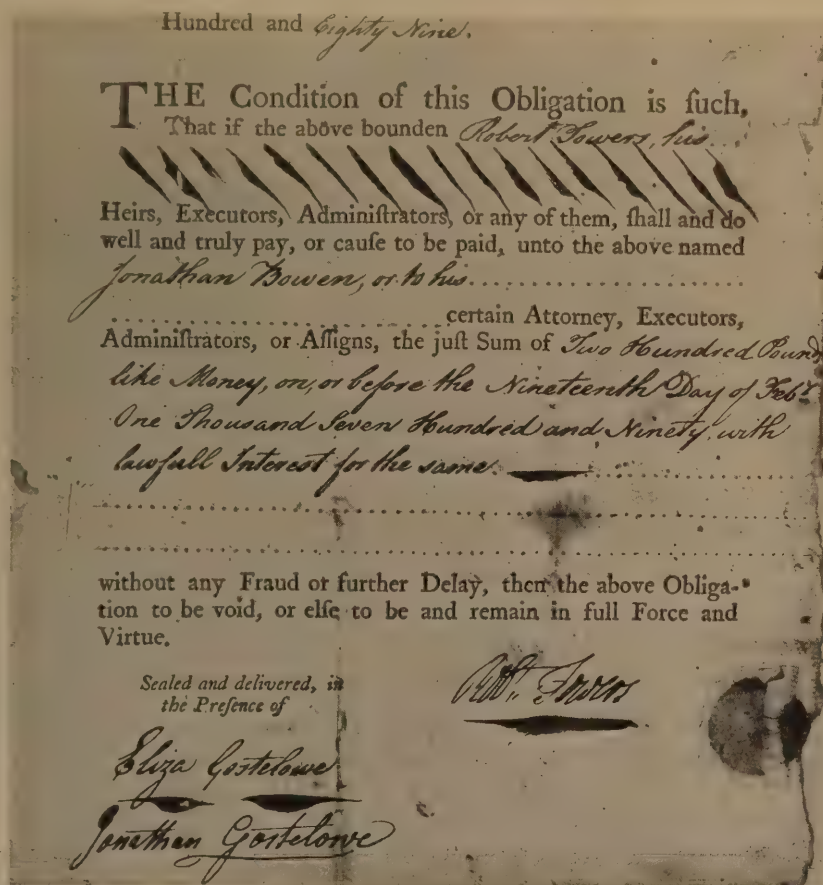 Hundred and Eighty Nine.
THE Condition of this Obligation is ſuch,
That if the above bounden Robert Towers, his
Heirs, Executors, Adminiſtrators, or any of them, ſhall and do
well and truly pay, or cauſe to be paid, unto the above named
Jonathan Bowen, or to his......................
......................certain Attorney, Executors,
Adminiſtrators, or Aſſigns, the juſt Sum of Two Hundred Pounds
like Money, on, or before the Nineteenth Day of Febr.
One Thousand Seven Hundred and Ninety, with
lawfull Interest for the same.
without any Fraud or further Delay, then the above Obliga-
tion to be void, or elſe to be and remain in full Force and
Virtue.
Sealed and delivered, in
the Preſence of
Robt. Towers
Eliza Gostelowe
Jonathan Gostelowe